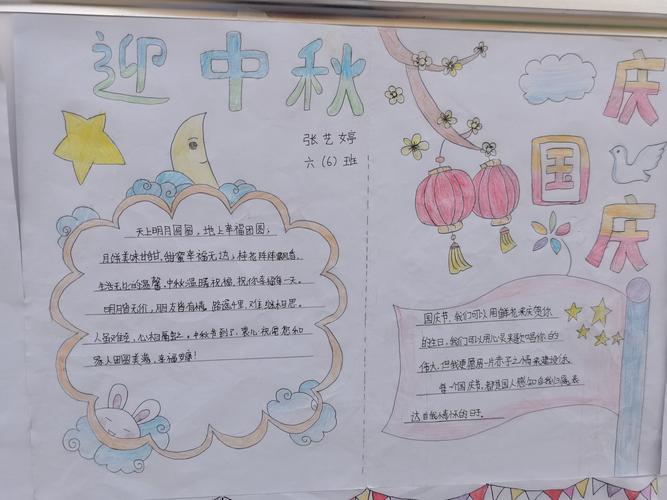 迎中秋
张艺婷
六(6)班
天上明月圆圆,地上幸福团圆;
月饼美味甘甜,甜蜜幸福无边;桂花阵阵飘香,
生活无比的温馨,中秋温暖祝福,祝你幸福每一天。
明月皆无价,朋友皆有情,路遥千里,难继相思。
人虽难往,心相蔔之。中秋节到了,衷心祝愿您和
家人团圆美满,幸福安康!
庆
国
庆
国庆节,我们可以用鲜花来庆贺你
的生日,我们可以用心灵来歌唱你的
伟大,但我更愿用一片赤子之情来建设你
每一个国庆节,都是国人感知自我归属,表
达自我情怀的日子。